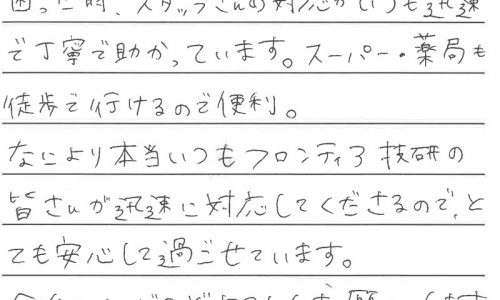 困った時、スタッフさんの対応がいつも迅速
で丁寧で助かっています。スーパー・薬局も
徒歩で行けるので便利。
なにより本当いつもフロンティア技研の
皆さんが迅速に対応してくださるので、と
ても安心して過ごせています。